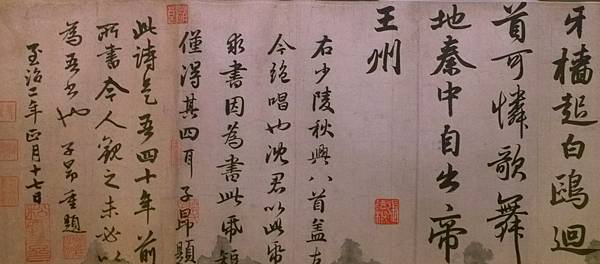 牙檣起白鷗迴
首可憐歌舞
地秦中自古帝
王州
右少陵秋興八首蓋古
今絕唱也沈君以此帋
求書因為書此帋短
僅得其四耳子昂題
此詩是吾四十年前
所書今人觀之未必以
為吾書也子昂重題
至治二年正月十七日